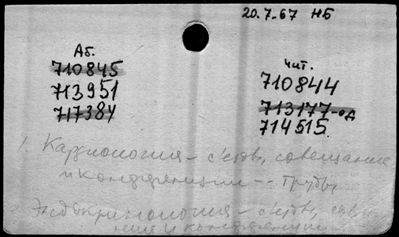 20.7.67 НБ
Аб.
710845
713951
717384
Чит.
710844
713177-од
714515.
1. Кардиология - съезды, совещания
и конференции -- Труды
2. Эндокринология - съезды, сов
ния и конференции